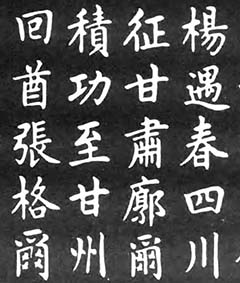 楊遇春四川
征甘肅廓爾
積功至甘州
回酋張格爾